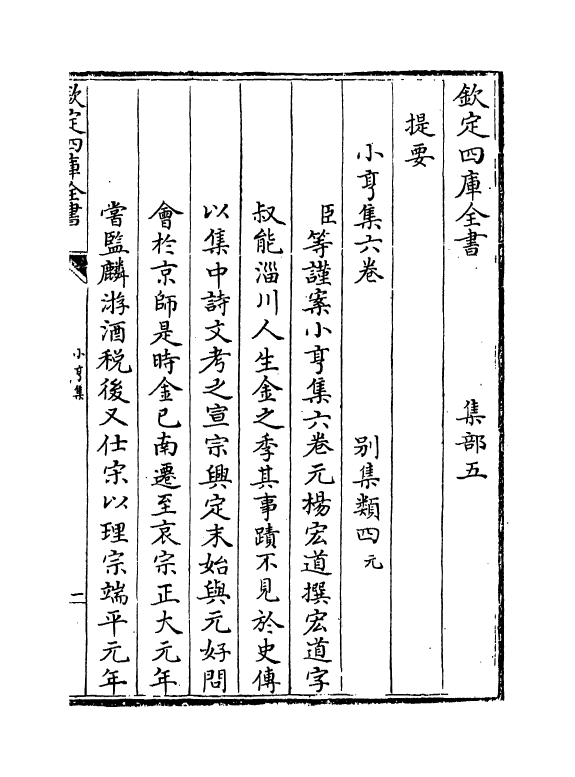 欽定四庫全書　集部五
提要
小亨集六卷　別集類四元
臣等謹案小亨集六卷元楊宏道撰宏道字
叔能淄川人生金之季其事蹟不見於史傳
以集中詩文考之宣宗興定末始與元好問
會於京師是時金已南遷至哀宗正大元年
嘗監麟游酒稅後又仕宋以理宗端平元年
欽定四庫全書
小亨集